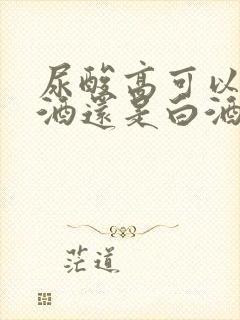 尿酸高可以
酒還是白酒
茫道